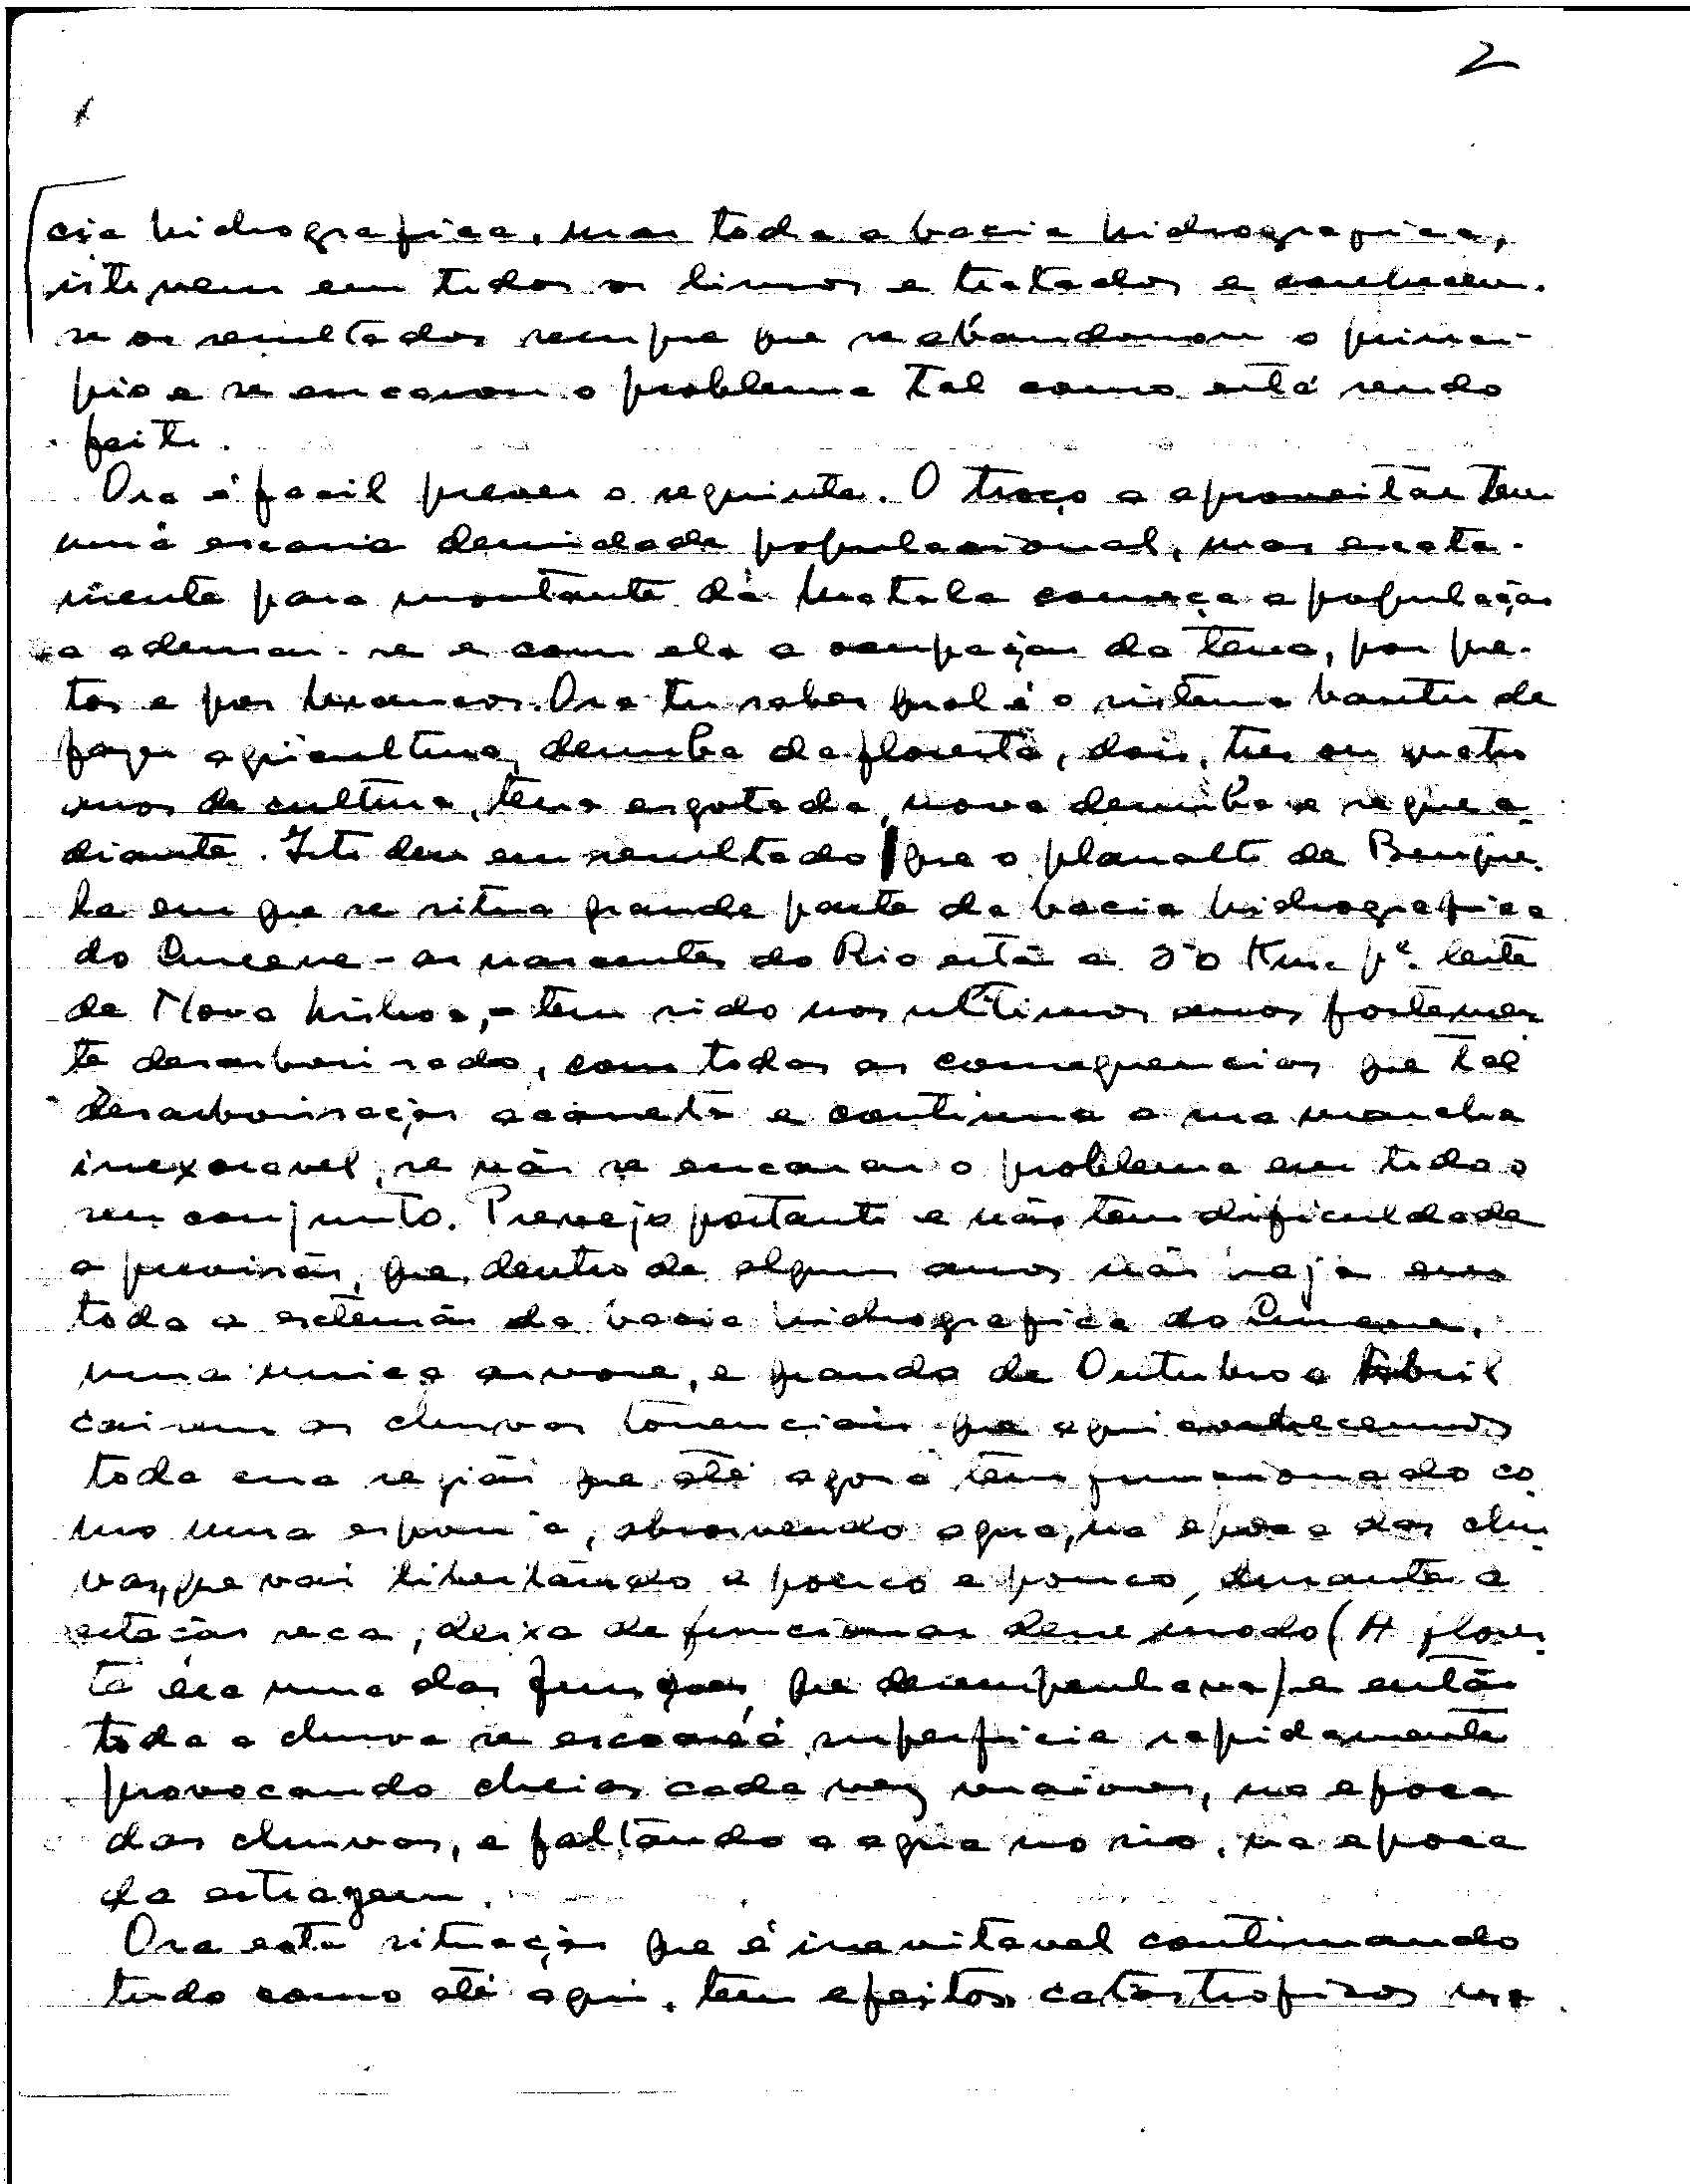 2
cia hidrografica, mas toda a bacia hidrografica,
isto vem em todos os livros e tratados e conhecem-
se os resultados sempre que se abandonou o princi-
pio e se encarou o problema tal como está sendo
feito.
Ora é facil prever o seguinte. O troço a aproveitar tem
uma escassa densidade populacional, mas exacta-
mente para montante da Matala começa a população
a adensar-se e com ela a ocupação da terra, por pre-
tos e por brancos. Ora tu sabes qual é o sistema bantu de
fazer agricultura, derruba da floresta, dois, tres ou quatro
anos de cultura, terra esgotada, nova derruba e segue a-
diante. Isto deu em resultado que o planalto de Bengue-
la em que se situa grande parte da bacia hidrografica
do Cunene - as nascentes do Rio estão a Km. pª. leste
de Nova Lisboa, - tem sido nos ultimos anos fortemen-
te desarborisado, com todas as consequencias que tal
desarborisação acarreta e continua a sua marcha
inexoravel, se não se encarar o problema em todo o
seu conjunto. Prevejo portanto e não tem dificuldade
a previsão, que, dentro de alguns anos não haja em
toda a extensão da bacia hidrografica do Cunene,
uma unica arvore, e quando de Outubro a Abril
cairem as chuvas torrenciais que aqui conhecemos
toda essa região que até agora tem funcionado co
mo uma esponja, absorvendo agua, na epoca das chu-
vas, que vai libertando a pouco e pouco, durante a
estação seca, deixa de funcionar desse modo (A flores-
ta era uma das funções que desempenhava) e então
toda a chuva se escoará á superficie rapidamente
provocando cheias cada vez maiores, na epoca
das chuvas, e faltando a agua no rio, na epoca
da estiagem.
Ora esta situação que é inevitavel continuando
tudo como até aqui, tem efeitos catastroficos na